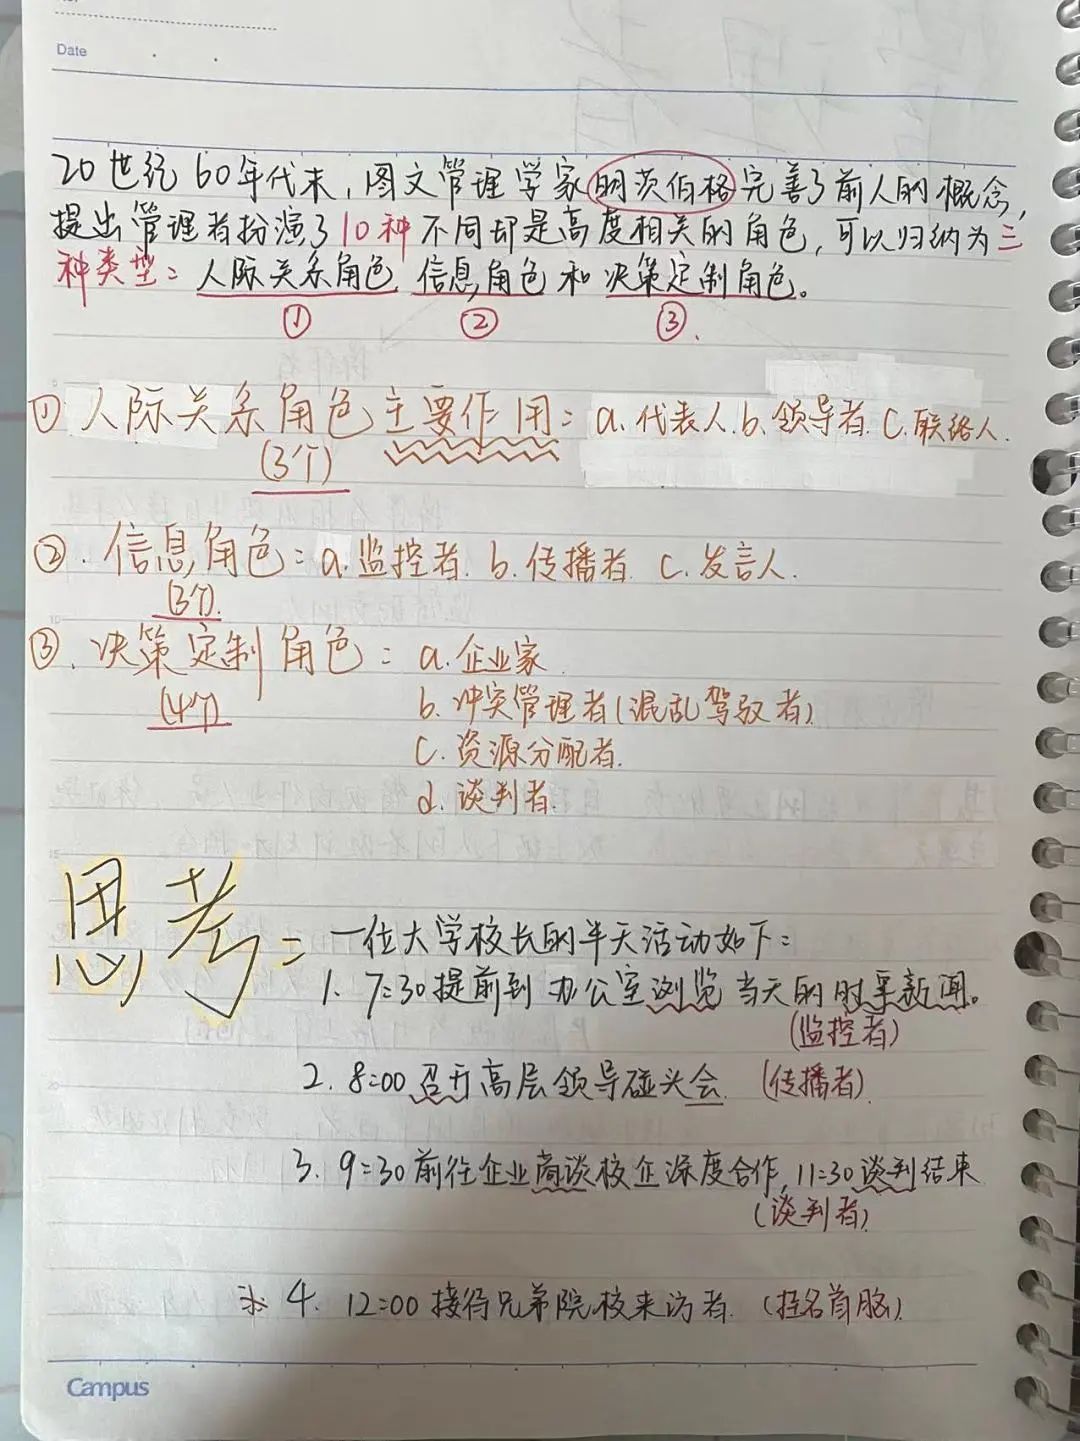 Date
20世纪60年代末，图文管理学家明茨伯格完善了前人的概念，
提出管理者扮演了10种不同却是高度相关的角色，可以归纳为三
种类型：人际关系角色、信息角色和决策定制角色。
① ② ③.
① 人际关系角色主要作用：a.代表人.b.领导者.C.联络人.
(3个)
②. 信息角色：a.监控者. b.传播者. C.发言人.
(3个).
③. 决策定制角色：a.企业家.
(4个)
b.冲突管理者(混乱驾驭者)
C.资源分配者.
d.谈判者.
思考：一位大学校长的半天活动如下：
1、7:30提前到办公室浏览当天的时事新闻。
(监控者)
2. 8:00召开高层领导碰头会. (传播者).
3. 9:30前往企业商谈校企深度合作，11:30谈判结束
(谈判者)
※ 4. 12:00接待兄弟院校来访者. (挂名首脑).
Campus